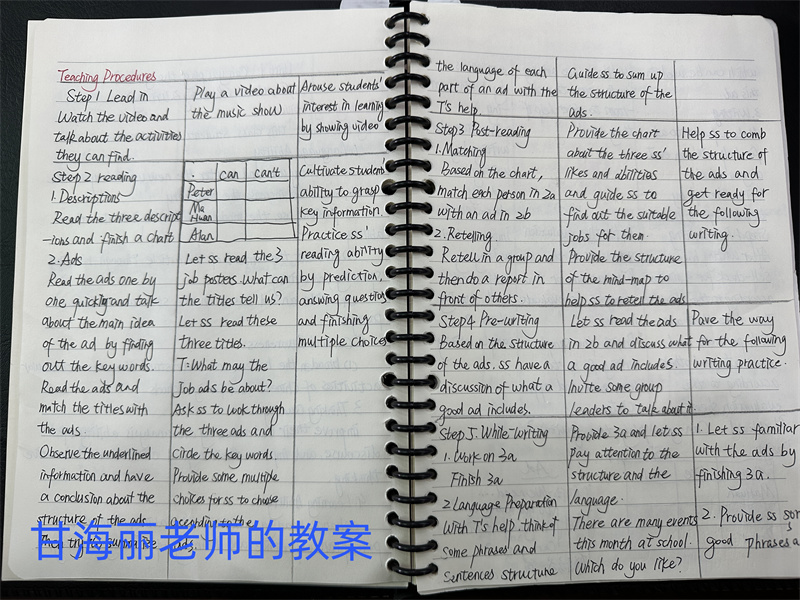 Teaching Procedures
Step 1 Lead in
Watch the video and
talk about the activities
they can find.
Step 2 reading
1. Descriptions
Read the three descript
-ions and finish a chart
2. Ads
Read the ads one by
one quickly and talk
about the main idea
of the ad by finding
out the key words.
Read the ads and
match the titles with
the ads.
Observe the underlined
information and have
a conclusion about the
structure of the ads.
Then try to summarize
Play a video about
the music show
can can't
Peter
Ma
Huan
Alan
Let ss read the 3
job posters. What can
the titles tell us?
Let ss read these
three titles.
T: What may the
job ads be about?
Ask ss to look through
the three ads and
circle the key words.
Provide some multiple
choices for ss to choose
according to the
ads.
Arouse students'
interest in learning
by showing video
Cultivate students
ability to grasp
key information.
Practice ss'
reading ability
by prediction,
answing question
and finishing
multiple choices
甘海丽老师的教案
the language of each
part of an ad with the
T's help.
Step3 Post-reading
1. Matching
Based on the chart,
match each person in 2a
with an ad in 2b
2. Retelling.
Retell in a group and
then do a report in
front of others.
Step4 Pre-writing
Based on the structure
of the ads. ss have a
discussion of what a
good ad includes.
Step 5. While-writing
1. Work on 3a
Finish 3a
2. Language Preparation
With T's help. think of
some phrases and
sentences structure
Guide ss to sum up
the structure of the
ads.
Provide the chart
about the three ss'
likes and abilities
and guide ss to
find out the suitable
jobs for them.
Provide the structure
of the mind-map to
help ss to retell the ads
Let ss read the ads
in 2b and discuss what
a good ad includes.
Invite some group
leaders to talk about it.
Provide 3a and let ss
pay attention to the
structure and the
language.
There are many events
this month at school.
Which do you like?
Help ss to comb
the structure of
the ads and
get ready for
the following
writing.
Pave the way
for the following
writing practice.
1. Let ss familiar
with the ads by
finishing 3a.
2. Provide ss som
good phrases a